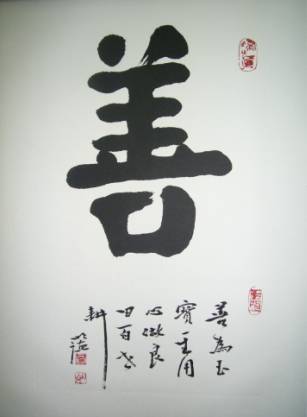 善
善為玉
寶一生用
心做良
田百世
耕